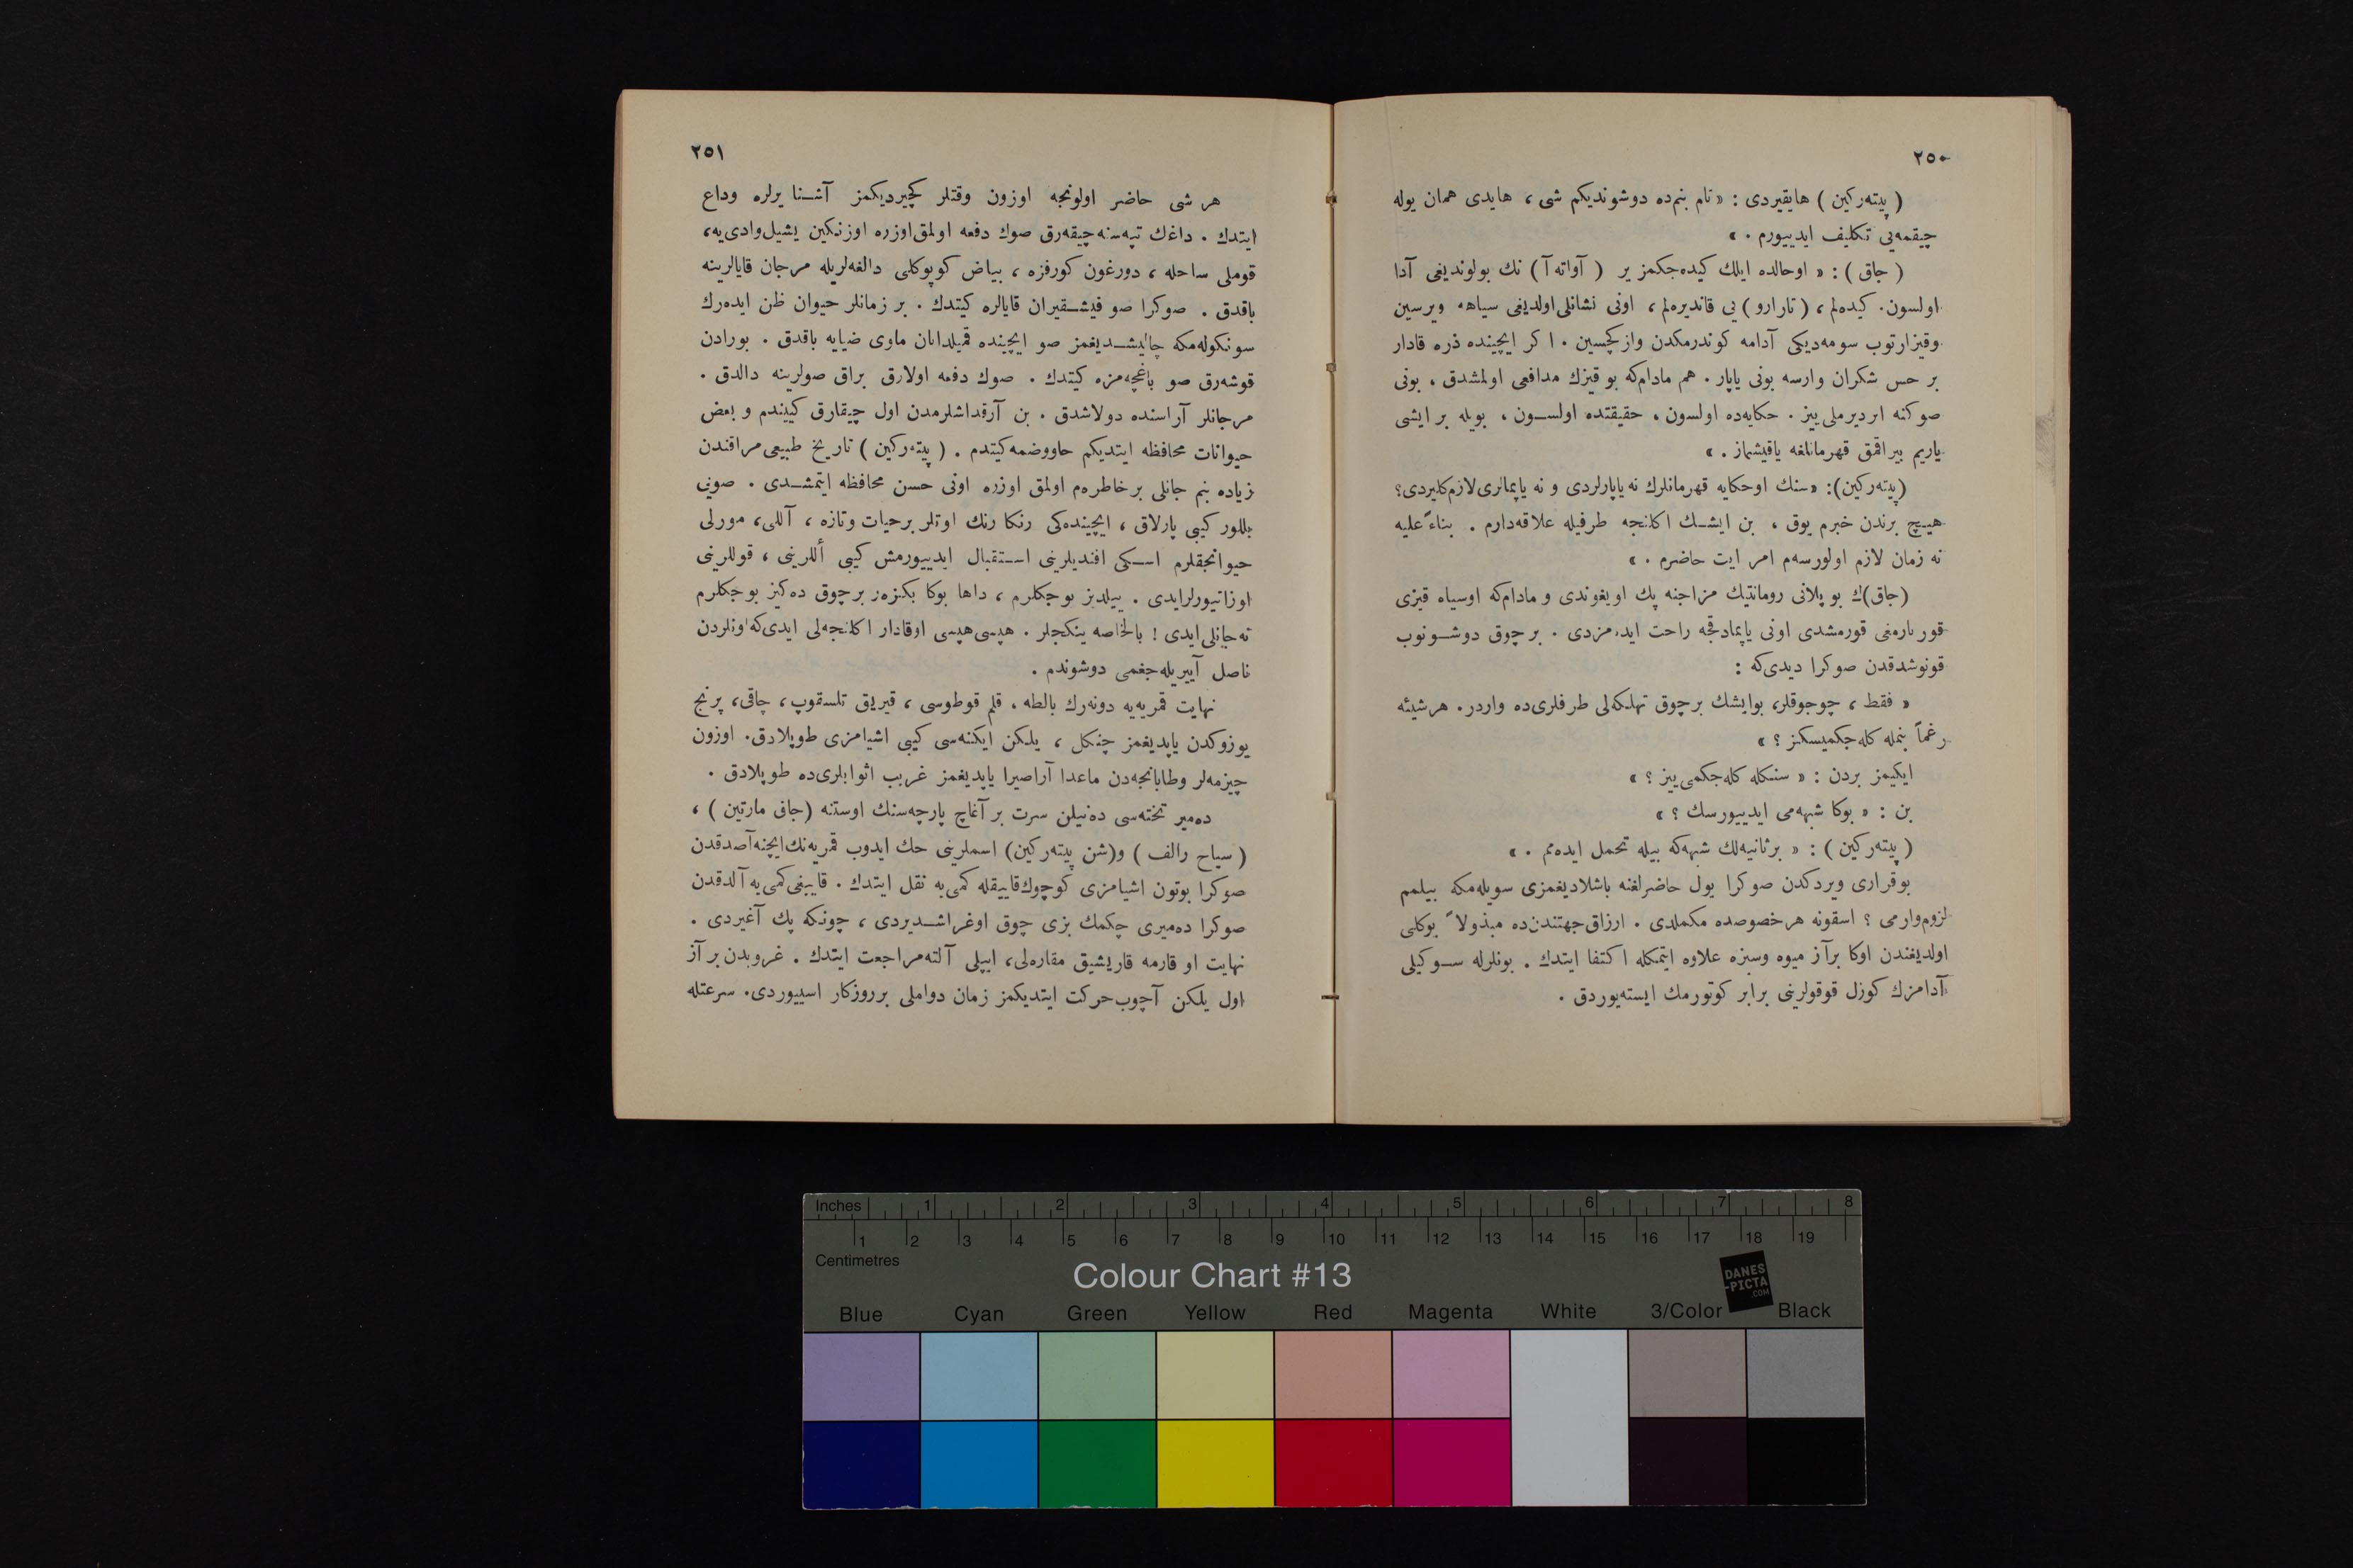 ٢٥٠
( پیته‌ركین ) هایقیردی : « تام بنم‌ده دوشوندیكم شی ، هایدی همان یوله
چیقمه‌یی تكلیف ایدییورم . »
( جاق ) : « اوحالده ایلك كیده‌جكمز یر ( آواته‌آ ) نك بولوندیغی آدا
اولسون. كیده‌لم ، ( تارارو ) یی قاندیره‌لم ، اونی نشانلی‌اولدیغی سیاهه ویرسین
وقیزارتوب سومه‌دیكی آدامه كوندرمكدن وازكچسین . اكر ایچینده ذره قادار
بر حس شكران وارسه بونی یاپار . هم مادام‌كه بو قیزك مدافعی اولمشدق ، بونی
صوكنه ایردیرملی‌ییز . حكایه‌ده اولسون ، حقیقتده اولسـون ، بویله بر ایشی
یاریم بیراقمق قهرمانلغه یاقیشماز . »
(پیته‌ركین): «سنك اوحكایه قهرمانلرك نه‌یاپارلردی و نه یاپمالری‌لازم‌كلیردی؟
هیـچ برندن خبرم یوق ، بن ایشـك اكلنجه طرفیله علاقه‌دارم . بناءً علیه
نه زمان لازم اولورسه‌م امر ایت حاضرم . »
(جاق)ك بو پلانی رومانتیك مزاجنه پك اویغوندی و مادام‌كه اوسیاه قیزی
قورتارمغی قورمشدی اونی یاپمادقجه راحت ایده‌مزدی . بر چوق دوشـونوب
قونوشدقدن صوكرا دیدی‌كه :
« فقط ، چوجوقلر، بوایشك برچوق تهلكه‌لی طرفلری‌ده واردر. هرشیئه
رغماً بنمله كله‌جكمیسكز ؟ »
ایكیمز بردن : « سنكله كله‌جكمی‌ییز ؟ »
بن : « بوكا شبهه‌می ایدییورسك ؟ »
( پیته‌ركین ) : « برثانیه‌لك شبهه‌كه بیله تحمل ایده‌مم . »
بوقراری ویردكدن صوكرا یول حاضرلغنه باشلادیغمزی سویله‌مكه بیلمم
لزوم‌وارمی ؟ اسقونه هرخصوصده مكملدی . ارزاق‌جهتندن‌ده مبذولاً یوكلی
اولدیغندن اوكا برآز میوه وسبزه علاوه ایتمكله اكتفا ایتدك . بونلرله سـوكیلی
آدامزك كوزل قوقولرینی برابر كوتورمك ایسته‌یوردق .
٢٥١
هر شی حاضر اولونجه اوزون وقتلر كچیردیكمز آشـنا یرلره وداع
ایتدك . داغك تپه‌سنه‌چیقه‌رق صوك دفعه اولمق‌اوزره اوزنكین یشیل‌وادی‌یه،
قوملی ساحله ، دورغون كورفزه ، بیاض كوپوكلی دالغه‌لریله مرجان قایالرینه
باقدق . صوكرا صو فیشـقیران قایالره كیتدك . بر زمانلر حیوان ظن ایده‌رك
سونكوله‌مكه چالیشـدیغمز صو ایچینده قمیلدانان ماوی ضیایه باقدق . بورادن
قوشه‌رق صو باغچه‌مزه كیتدك . صوك دفعه اولارق براق صولرینه دالدق .
مرجانلر آراسنده دولاشدق . بن آرقداشلرمدن اول چیقارق كییندم و بعض
حیوانات محافظه ایتدیكم حاووضمه‌كیتدم . ( پیته‌ركین ) تاریخ طبیعی‌مراقندن
زیاده بنم جانلی برخاطره‌م اولمق اوزره اونی حسن محافظه ایتمشـدی . صویی
بللور كیبی پارلاق ، ایچینده‌كی رنكا رنك اوتلر برحیات وتازه ، آللی، مورلی
حیوانجقلرم اسـكی افندیلرینی اسـتقبال ایدییورمش كیبی أللرینی ، قوللرینی
اوزاتیورلرایدی . ییلدیز بوجكلرم ، داها بوكا بكزه‌ر برچوق ده‌كیز بوجكلرم
نه‌جانلی‌ایدی ! بالخاصه ینكجلر . هپسی‌هپسی اوقادار اكلنجه‌لی ایدی‌كه‌اونلردن
ناصل آییریله‌جغمی دوشوندم .
نهایت قمریه‌یه دونه‌رك بالطه ، قلم قوطوسی ، قیریق تلسقوپ ، چاقی، پرنج
یوزوكدن یاپدیغمز چنكل ، یلكن ایكنه‌سی كیبی اشیامزی طوپلادق. اوزون
چیزمه‌لر وطابانجه‌دن ماعدا آراصیرا یاپدیغمز غریب اثوابلری‌ده طوپلادق .
ده‌میر تخته‌سی ده‌نیلن سرت بر آغاچ پارچه‌سنك اوستنه (جاق مارتین ) ،
( سیاح رالف ) و(شن پیته‌ركین) اسملرینی حك ایدوب قمریه‌نك‌ایچنه‌آصدقدن
صوكرا بوتون اشیامزی كوچوك‌قاییقله كمی‌یه نقل ایتدك . قاییغی‌كمی‌یه آلدقدن
صوكرا ده‌میری چكمك بزی چوق اوغراشـدیردی ، چونكه پك آغیردی .
نهایت او قارمه قاریشیق مقاره‌لی، ایپلی آلته‌مراجعت ایتدك . غروبدن برآز
اول یلكن آچوب‌حركت ایتدیكمز زمان دواملی برروزكار اسییوردی. سرعتله
Inches 1 2 3 4 5 6 7 8
1 2 3 4 5 6 7 8 9 10 11 12 13 14 15 16 17 18 19
Centimetres
Colour Chart #13
DANES
-PICTA
.COM
Blue Cyan Green Yellow Red Magenta White 3/Color Black